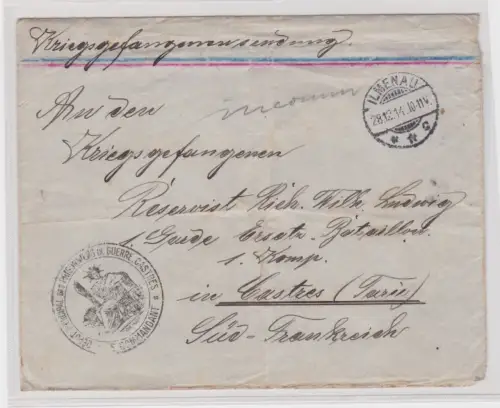 Kriegsgefangenensendung.
ILMENAU
28.12.14. 10-11V.
* * c
An den
Kriegsgefangenen
Reservist Rich. Wilh. Ludwig
1. Garde Ersatz-Bataillon
1. Komp.
in Castres (Tarn)
Süd-Frankreich
DE GUERRE, CASTRES * COMMANDANT